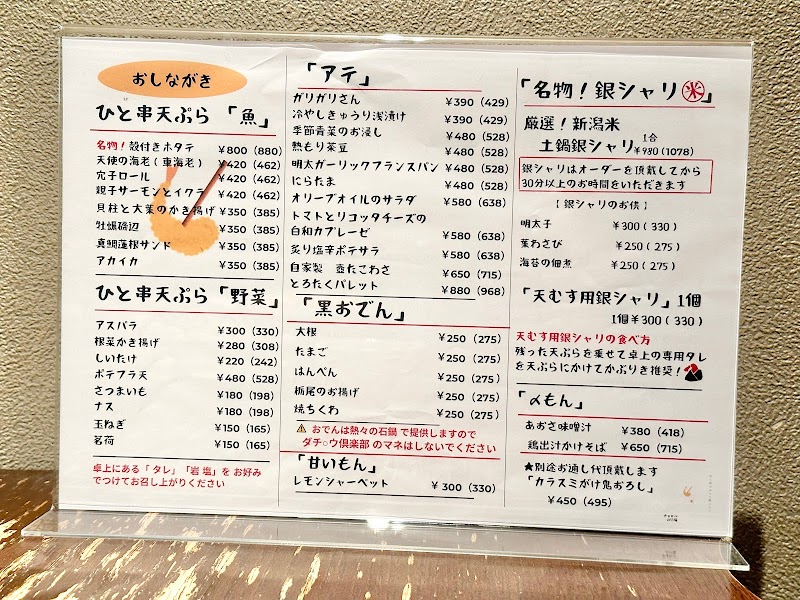 おしながき
ひと串天ぷら「魚」
名物！殻付きホタテ ¥800（880）
天使の海老（車海老） ¥420（462）
穴子ロール ¥420（462）
親子サーモンとイクラ ¥420（462）
貝柱と大葉のかき揚げ ¥350（385）
牡蠣磯辺 ¥350（385）
真鯛蓮根サンド ¥350（385）
アカイカ ¥350（385）
ひと串天ぷら「野菜」
アスパラ ¥300（330）
根菜かき揚げ ¥280（308）
しいたけ ¥220（242）
ポテフラ天 ¥480（528）
さつまいも ¥180（198）
ナス ¥180（198）
玉ねぎ ¥150（165）
茗荷 ¥150（165）
卓上にある「タレ」「岩塩」をお好み
でつけてお召し上がりください
「アテ」
ガリガリさん ¥390（429）
冷やしきゅうり浅漬け ¥390（429）
季節青菜のお浸し ¥480（528）
熱もり茶豆 ¥480（528）
明太ガーリックフランスパン ¥480（528）
にらたま ¥480（528）
オリーブオイルのサラダ ¥580（638）
トマトとリコッタチーズの
白和カプレーゼ ¥580（638）
炙り塩辛ポテサラ ¥580（638）
自家製 壺たこわさ ¥650（715）
とろたくパレット ¥880（968）
「黒おでん」
大根 ¥250（275）
たまご ¥250（275）
はんぺん ¥250（275）
栃尾のお揚げ ¥250（275）
焼ちくわ ¥250（275）
⚠ おでんは熱々の石鍋で提供しますので
ダチ○ウ倶楽部のマネはしないでください
「甘いもん」
レモンシャーベット ¥300（330）
「名物！銀シャリ㊍」
厳選！新潟米
土鍋銀シャリ 1合 ¥980（1078）
銀シャリはオーダーを頂戴してから
30分以上のお時間をいただきます
【銀シャリのお供】
明太子 ¥300（330）
葉わさび ¥250（275）
海苔の佃煮 ¥250（275）
「天むす用銀シャリ」1個
1個¥300（330）
天むす用銀シャリの食べ方
残った天ぷらを乗せて卓上の専用タレ
を天ぷらにかけてかぶりき推奨！
「〆もん」
あおさ味噌汁 ¥380（418）
鶏出汁かけそば ¥650（715）
★別途お通し代頂戴します
「カラスミがけ鬼おろし」
¥450（495）